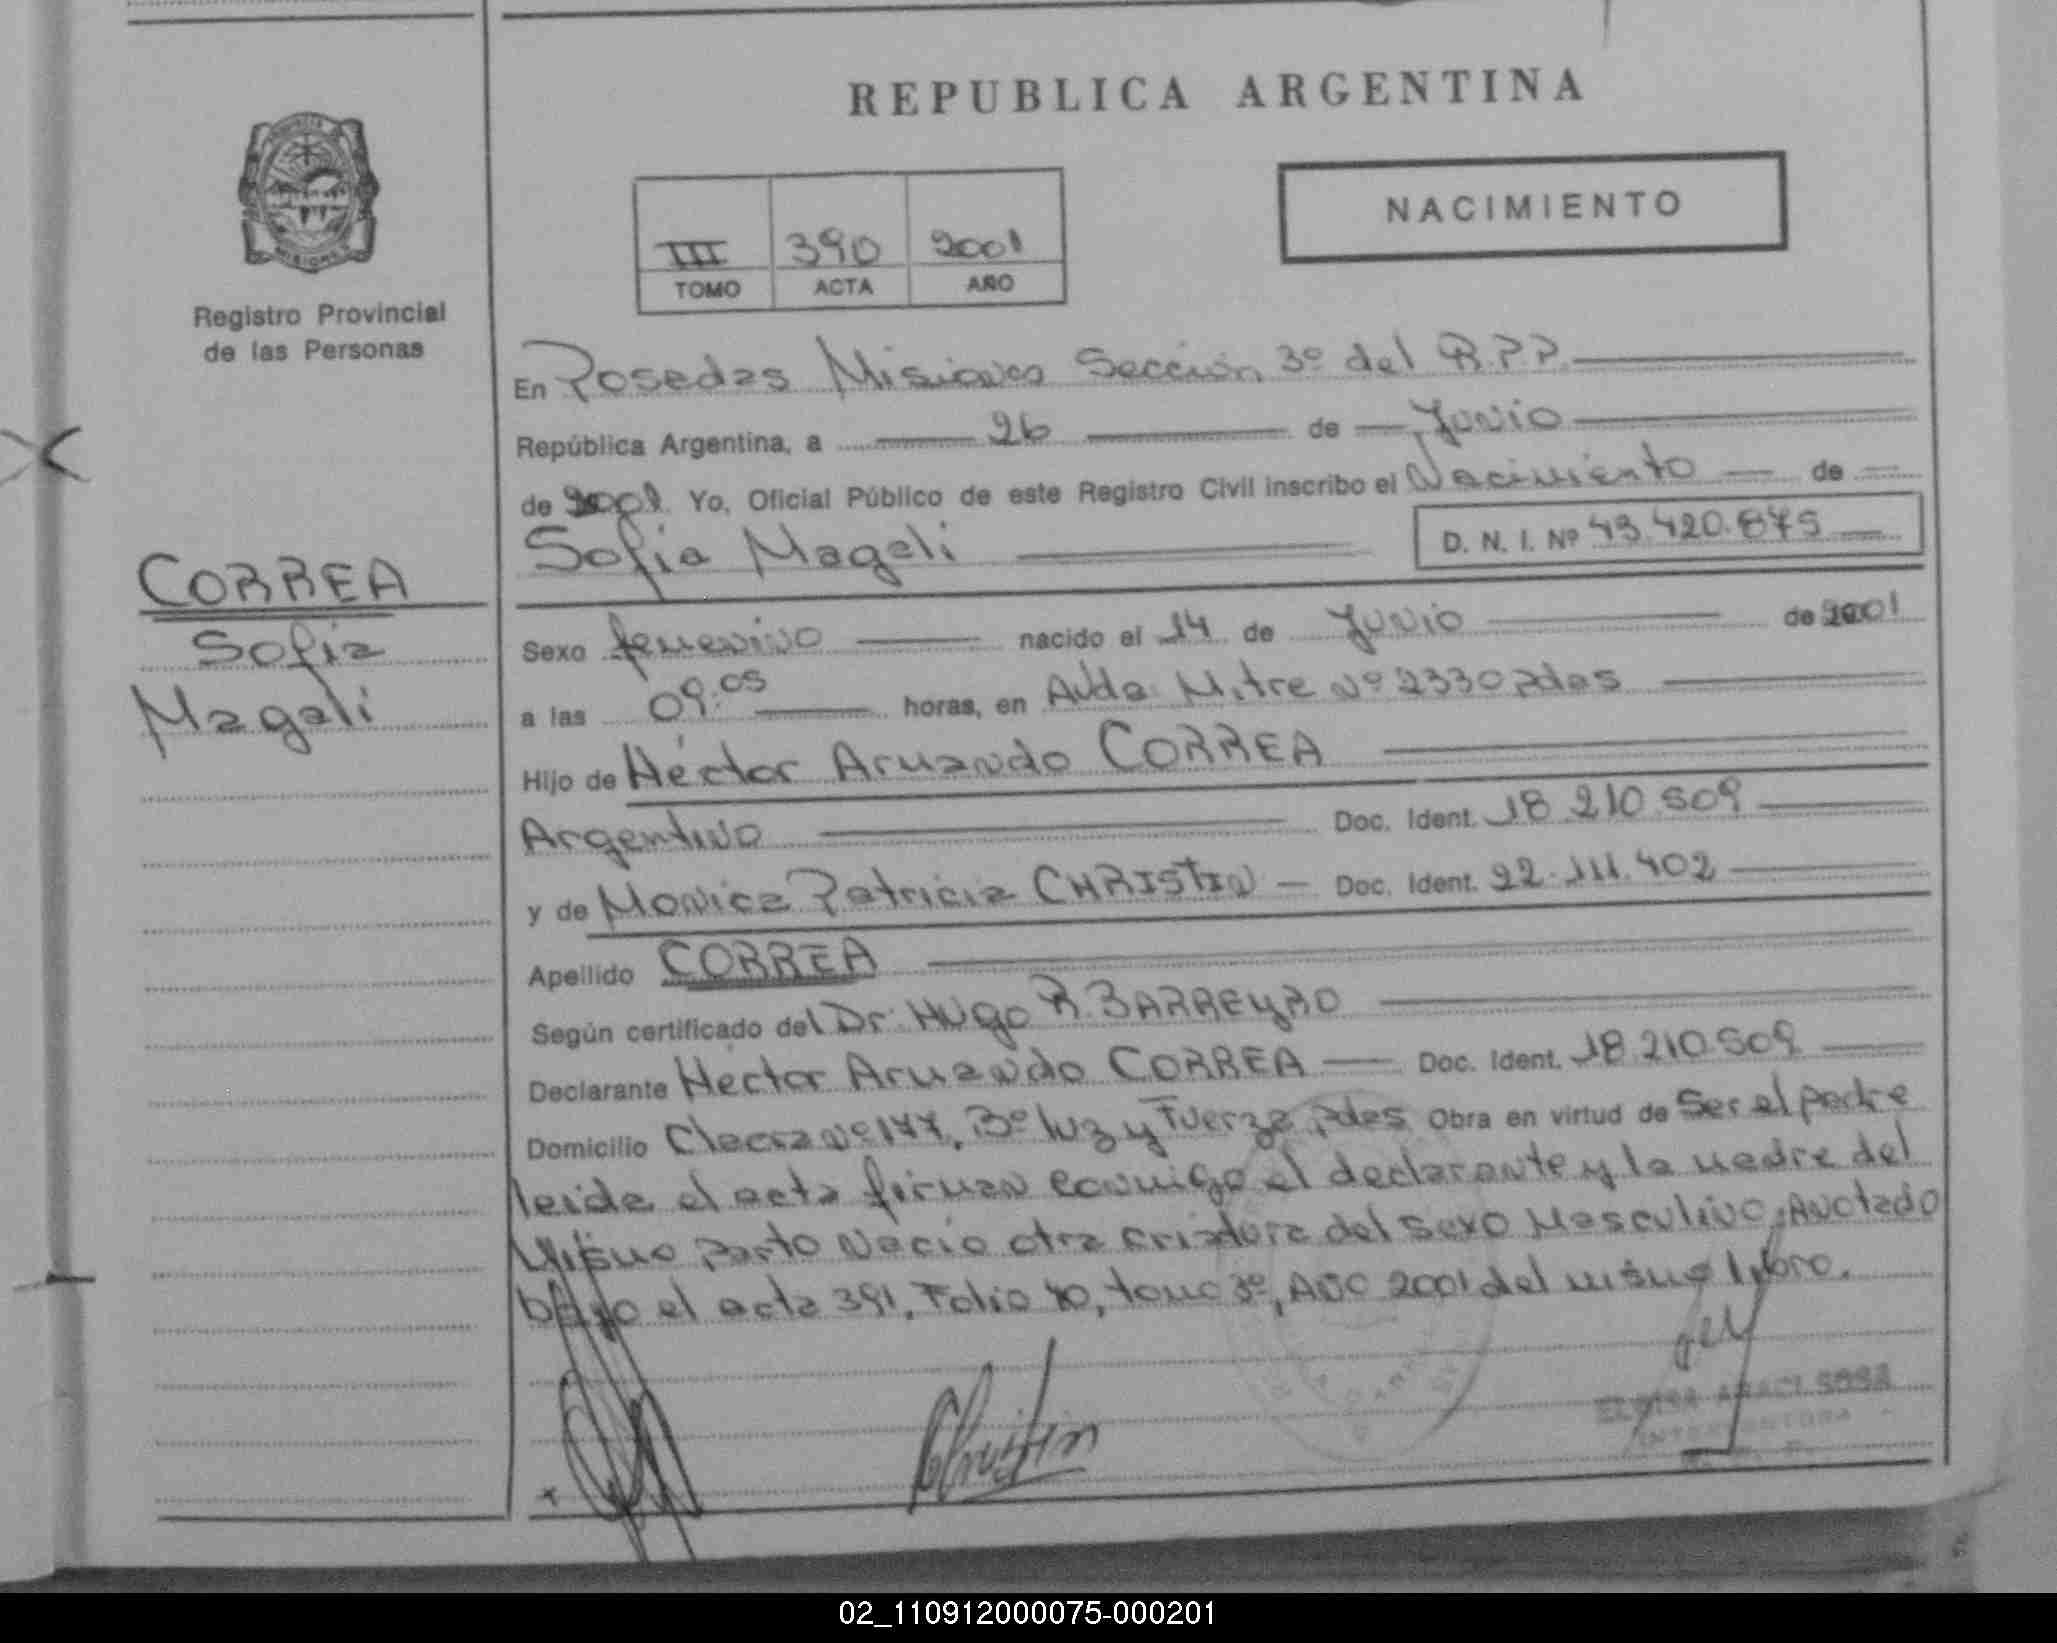 REPUBLICA ARGENTINA
NACIMIENTO
III 390 2001
TOMO ACTA AÑO
MISIONES
Registro Provincial
de las Personas
CORREA
Sofia
Magali
En Posadas Misiones Sección 3º del R.P.P.
República Argentina, a 26 de Junio
de 2001. Yo, Oficial Público de este Registro Civil inscribo el Nacimiento de
Sofia Magali D. N. I. Nº 43.420.875
Sexo femenino nacido el 14 de Junio de 2001
a las 09:05 horas, en Avda. Mitre Nº 2330 Pdas
Hijo de Héctor Armando CORREA
Argentino Doc. Ident. 18.210.509
y de Monica Patricia CHRISTIN Doc. Ident. 22.111.402
Apellido CORREA
Según certificado del Dr. Hugo R. BARREYRO
Declarante Hector Armando CORREA Doc. Ident. 18.210.509
Domicilio Chacra Nº 177, Bº luz y Fuerza, Pdas Obra en virtud de Ser el padre
leida el acta firman conmigo el declarante y la madre del
Mismo parto Nacio otra criatura del sexo Masculino, Anotado
bajo el acta 391, Folio 40, tomo 3º, Año 2001 del mismo libro.
Christin
ELOISA ARACI SOSA
02_110912000075-000201